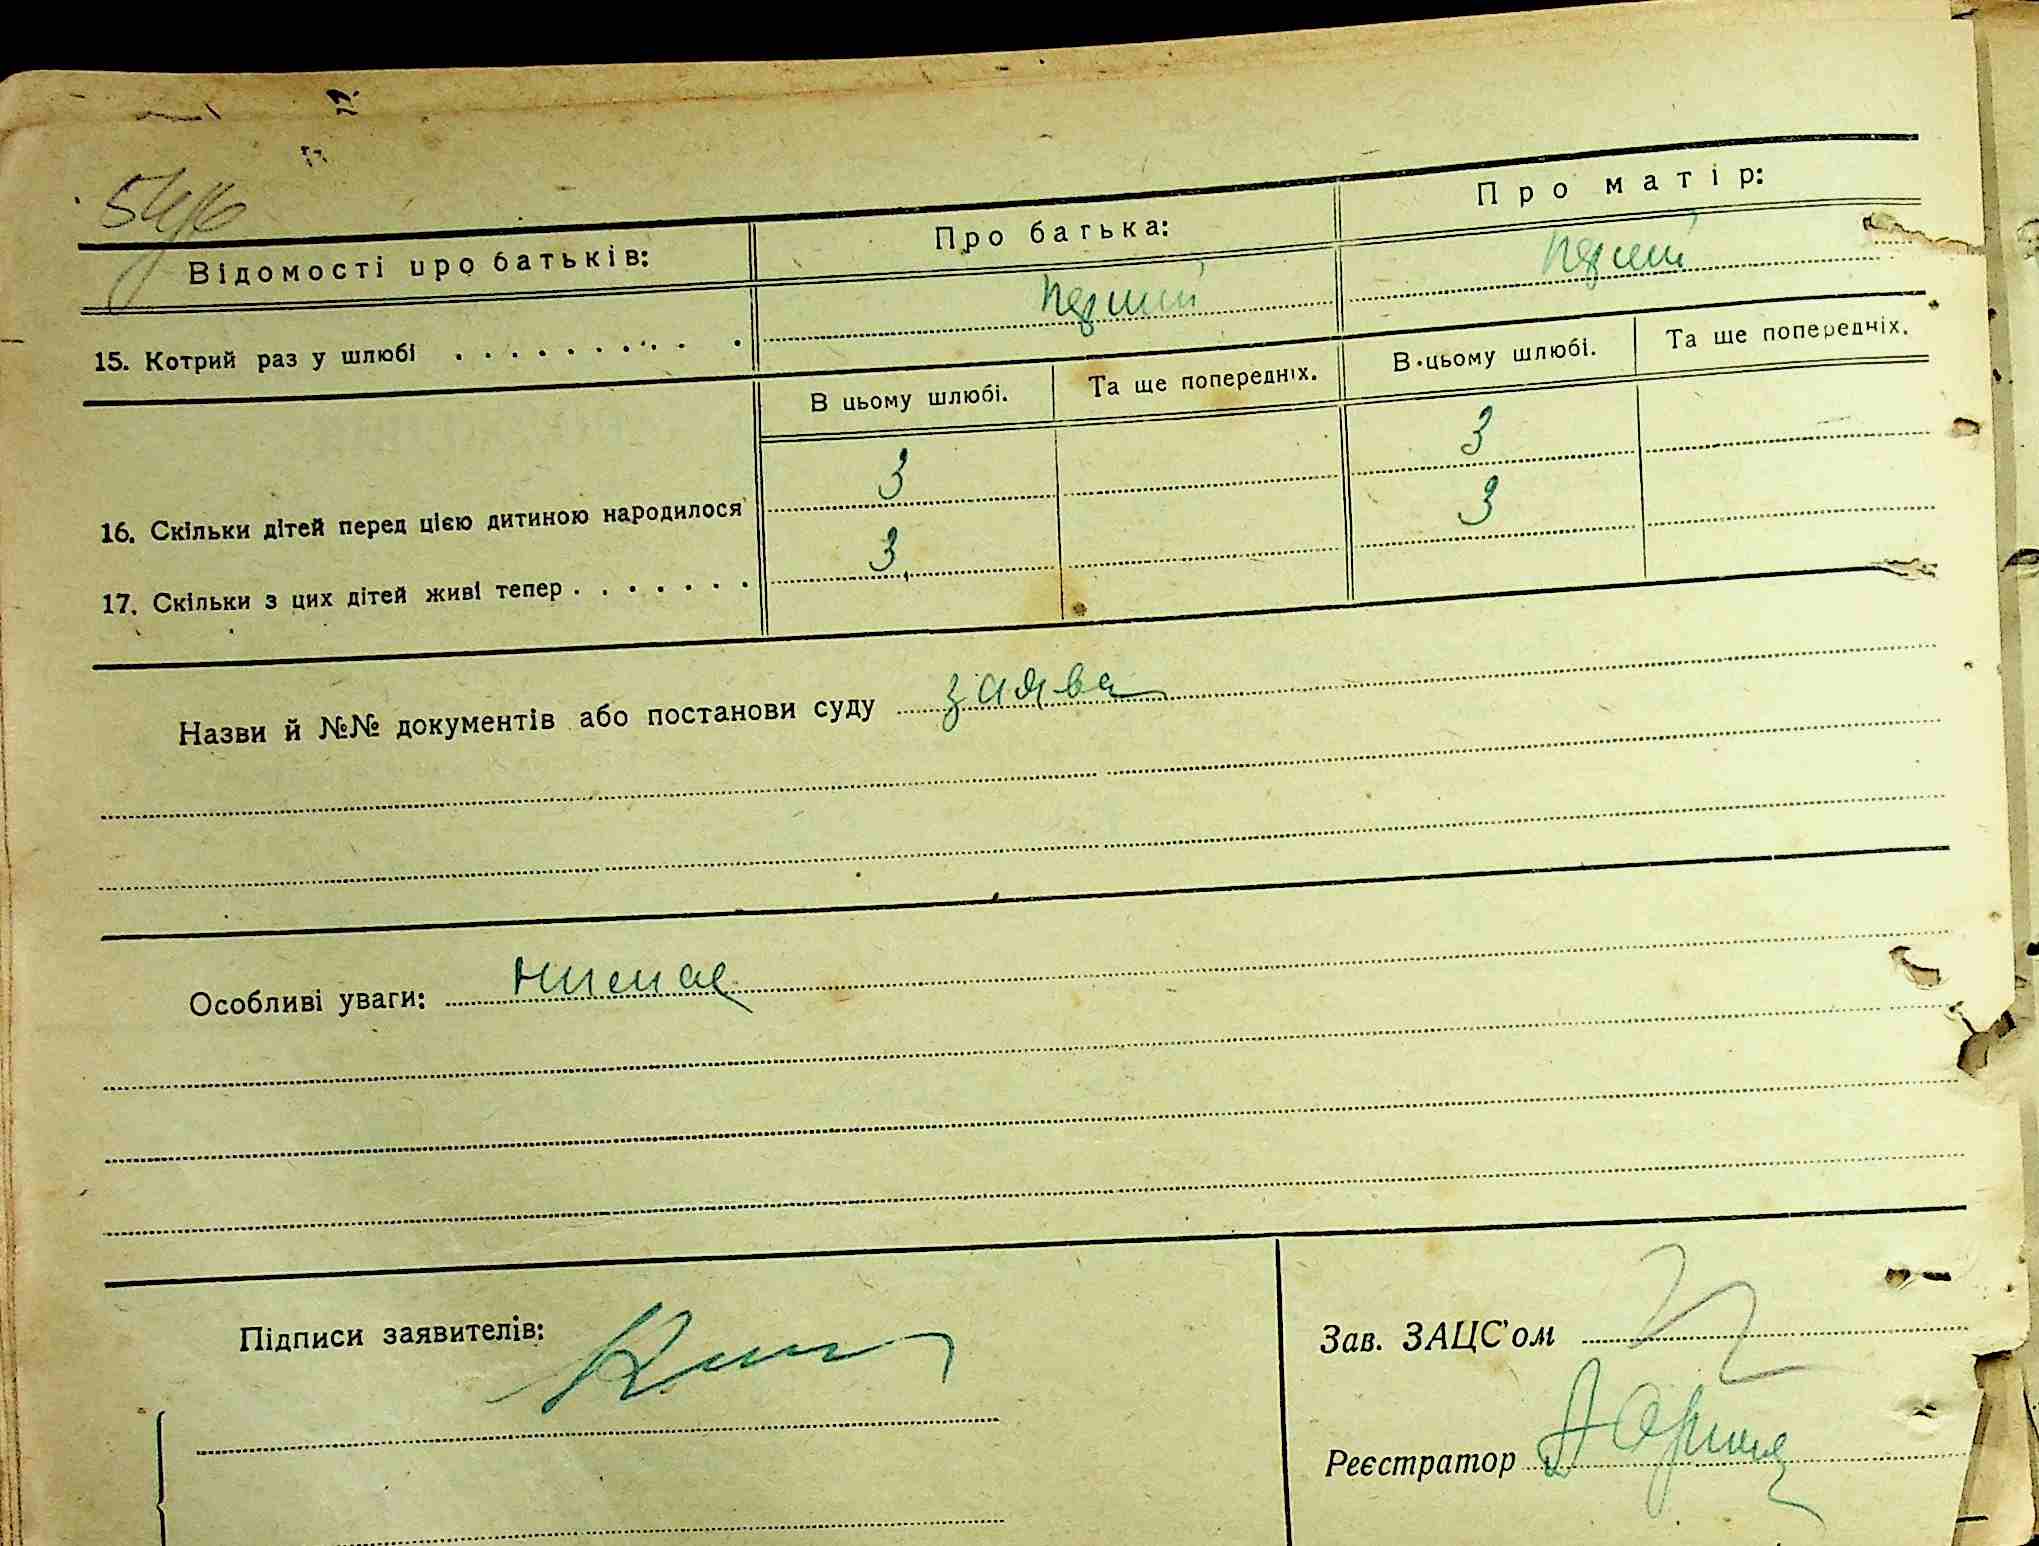 Відомості про батьків: Про батька: Про матір:
15. Котрий раз у шлюбі . . . . . . . . . . перший перший
В цьому шлюбі. Та ще попередніх. В цьому шлюбі. Та ще попередніх.
16. Скільки дітей перед цією дитиною народилося 3 3
17. Скільки з цих дітей живі тепер . . . . . . . 3 3
Назви й №№ документів або постанови суду заява
Особливі уваги: нимае
Підписи заявителів:
Зав. ЗАЦС'ом
Реєстратор